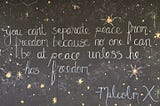 you can't separate peace from
freedom because no one can
be at peace unless he
has freedom
Malcolm X